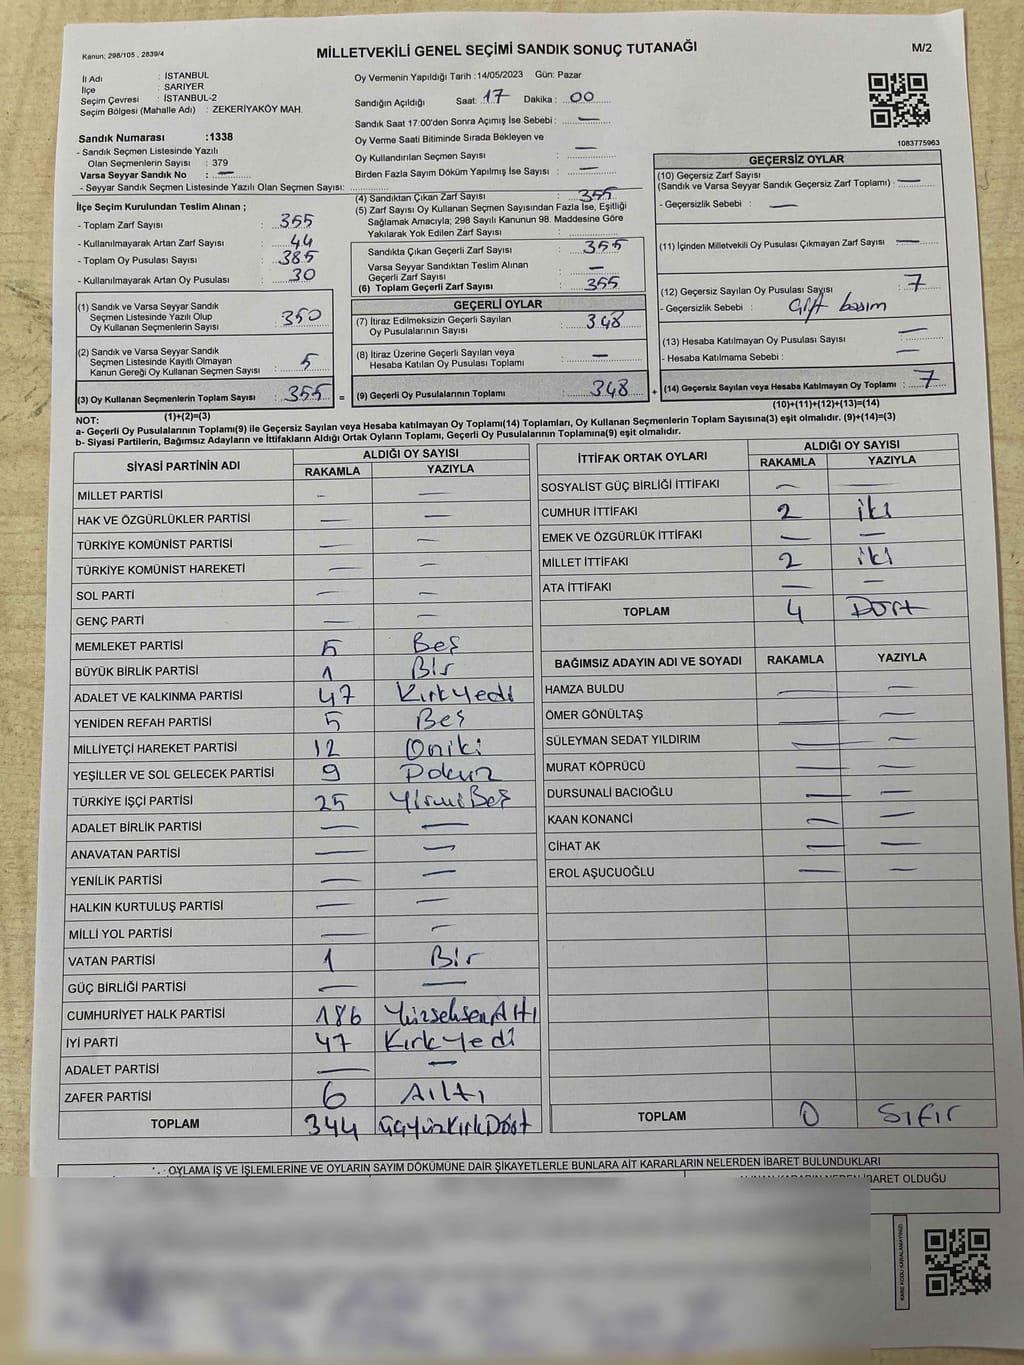 Kanun; 298/105 , 2839/4
MİLLETVEKİLİ GENEL SEÇİMİ SANDIK SONUÇ TUTANAĞI
M/2
İl Adı : İSTANBUL
İlçe : SARIYER
Seçim Çevresi : İSTANBUL-2
Seçim Bölgesi (Mahalle Adı) : ZEKERİYAKÖY MAH.
Sandık Numarası :1338
- Sandık Seçmen Listesinde Yazılı
Olan Seçmenlerin Sayısı : 379
Varsa Seyyar Sandık No : —
- Seyyar Sandık Seçmen Listesinde Yazılı Olan Seçmen Sayısı:
Oy Vermenin Yapıldığı Tarih :14/05/2023 Gün: Pazar
Sandığın Açıldığı Saat: 17 Dakika : 00
Sandık Saat 17:00'den Sonra Açımış İse Sebebi : —
Oy Verme Saati Bitiminde Sırada Bekleyen ve
Oy Kullandırılan Seçmen Sayısı : —
Birden Fazla Sayım Döküm Yapılmış İse Sayısı : —
1083775963
İlçe Seçim Kurulundan Teslim Alınan ;
- Toplam Zarf Sayısı : 355
- Kullanılmayarak Artan Zarf Sayısı : 44
- Toplam Oy Pusulası Sayısı : 385
- Kullanılmayarak Artan Oy Pusulası : 30
(1) Sandık ve Varsa Seyyar Sandık
Seçmen Listesinde Yazılı Olup
Oy Kullanan Seçmenlerin Sayısı : 350
(2) Sandık ve Varsa Seyyar Sandık
Seçmen Listesinde Kayıtlı Olmayan
Kanun Gereği Oy Kullanan Seçmen Sayısı : 5
(3) Oy Kullanan Seçmenlerin Toplam Sayısı : 355 =
(4) Sandıktan Çıkan Zarf Sayısı : 355
(5) Zarf Sayısı Oy Kullanan Seçmen Sayısından Fazla İse, Eşitliği
Sağlamak Amacıyla; 298 Sayılı Kanunun 98. Maddesine Göre
Yakılarak Yok Edilen Zarf Sayısı :
Sandıkta Çıkan Geçerli Zarf Sayısı : 355
Varsa Seyyar Sandıktan Teslim Alınan
Geçerli Zarf Sayısı : —
(6) Toplam Geçerli Zarf Sayısı : 355
GEÇERLİ OYLAR
(7) İtiraz Edilmeksizin Geçerli Sayılan
Oy Pusulalarının Sayısı : 348
(8) İtiraz Üzerine Geçerli Sayılan veya
Hesaba Katılan Oy Pusulası Toplamı : —
(9) Geçerli Oy Pusulalarının Toplamı : 348 +
GEÇERSİZ OYLAR
(10) Geçersiz Zarf Sayısı
(Sandık ve Varsa Seyyar Sandık Geçersiz Zarf Toplamı) : —
- Geçersizlik Sebebi : —
(11) İçinden Milletvekili Oy Pusulası Çıkmayan Zarf Sayısı : —
(12) Geçersiz Sayılan Oy Pusulası Sayısı : 7
- Geçersizlik Sebebi : çift basım
(13) Hesaba Katılmayan Oy Pusulası Sayısı : —
- Hesaba Katılmama Sebebi : —
(14) Geçersiz Sayılan veya Hesaba Katılmayan Oy Toplamı : 7
(1)+(2)=(3)
(10)+(11)+(12)+(13)=(14)
NOT:
a- Geçerli Oy Pusulalarının Toplamı(9) ile Geçersiz Sayılan veya Hesaba katılmayan Oy Toplamı(14) Toplamları, Oy Kullanan Seçmenlerin Toplam Sayısına(3) eşit olmalıdır. (9)+(14)=(3)
b- Siyasi Partilerin, Bağımsız Adayların ve İttifakların Aldığı Ortak Oyların Toplamı, Geçerli Oy Pusulalarının Toplamına(9) eşit olmalıdır.
SİYASİ PARTİNİN ADI ALDIĞI OY SAYISI
RAKAMLA YAZIYLA
MİLLET PARTİSİ — —
HAK VE ÖZGÜRLÜKLER PARTİSİ — —
TÜRKİYE KOMÜNİST PARTİSİ — —
TÜRKİYE KOMÜNİST HAREKETİ — —
SOL PARTİ — —
GENÇ PARTİ — —
MEMLEKET PARTİSİ 5 Beş
BÜYÜK BİRLİK PARTİSİ 1 Bir
ADALET VE KALKINMA PARTİSİ 47 Kırkyedi
YENİDEN REFAH PARTİSİ 5 Beş
MİLLİYETÇİ HAREKET PARTİSİ 12 Oniki
YEŞİLLER VE SOL GELECEK PARTİSİ 9 Dokuz
TÜRKİYE İŞÇİ PARTİSİ 25 YirmiBeş
ADALET BİRLİK PARTİSİ — —
ANAVATAN PARTİSİ — —
YENİLİK PARTİSİ — —
HALKIN KURTULUŞ PARTİSİ — —
MİLLİ YOL PARTİSİ — —
VATAN PARTİSİ 1 Bir
GÜÇ BİRLİĞİ PARTİSİ — —
CUMHURİYET HALK PARTİSİ 186 YüzseksenAltı
İYİ PARTİ 47 KırkYedi
ADALET PARTİSİ — —
ZAFER PARTİSİ 6 Altı
TOPLAM 344 ÜçyüzKırkDört
İTTİFAK ORTAK OYLARI ALDIĞI OY SAYISI
RAKAMLA YAZIYLA
SOSYALİST GÜÇ BİRLİĞİ İTTİFAKI — —
CUMHUR İTTİFAKI 2 iki
EMEK VE ÖZGÜRLÜK İTTİFAKI — —
MİLLET İTTİFAKI 2 iki
ATA İTTİFAKI — —
TOPLAM 4 Dört
BAĞIMSIZ ADAYIN ADI VE SOYADI RAKAMLA YAZIYLA
HAMZA BULDU — —
ÖMER GÖNÜLTAŞ — —
SÜLEYMAN SEDAT YILDIRIM — —
MURAT KÖPRÜCÜ — —
DURSUNALİ BACIOĞLU — —
KAAN KONANCİ — —
CİHAT AK — —
EROL AŞUCUOĞLU — —
TOPLAM 0 Sıfır
OYLAMA İŞ VE İŞLEMLERİNE VE OYLARIN SAYIM DÖKÜMÜNE DAİR ŞİKAYETLERLE BUNLARA AİT KARARLARIN NELERDEN İBARET BULUNDUKLARI
İBARET OLDUĞU